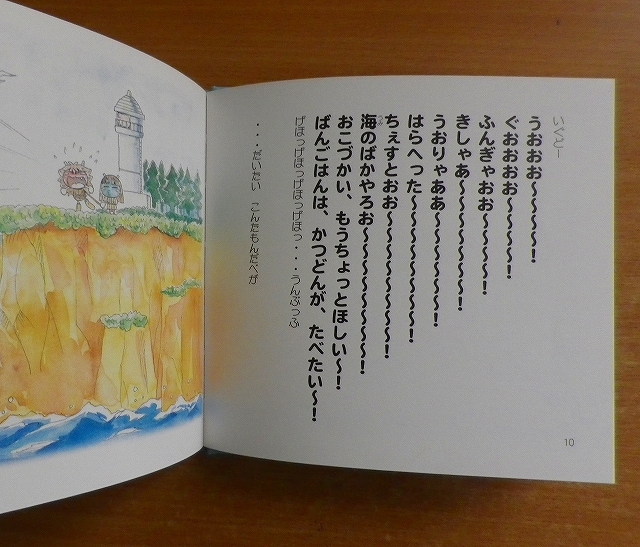 いぐどー
うおおお～～～～～！
ぐおおおお～～～～！
ふんぎゃおお～～～～！
きしゃあ～～～～～～～！
うおりゃああ～～～～～～！
はらへった～～～～～～～～！
ちぇすとおお～～～～～～～～！
海のばかやろお～～～～～～～～～！
おこづかい、もうちょっとほしい～！
ばんごはんは、かつどんが、たべたい～！
げほっげほっげほっげほっ・・・うんぷっふ
・・・だいたい　こんたもんだべが
10